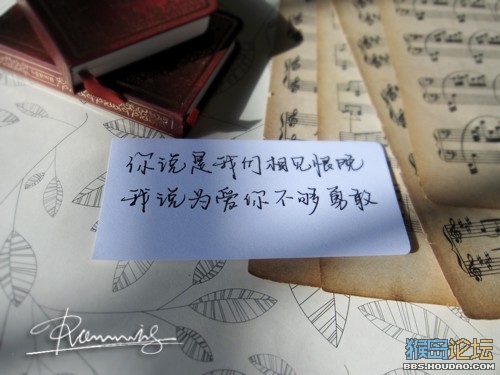 你说是我们相见恨晚
我说为爱你不够勇敢
猴岛论坛
BBS.HOUDAO.COM